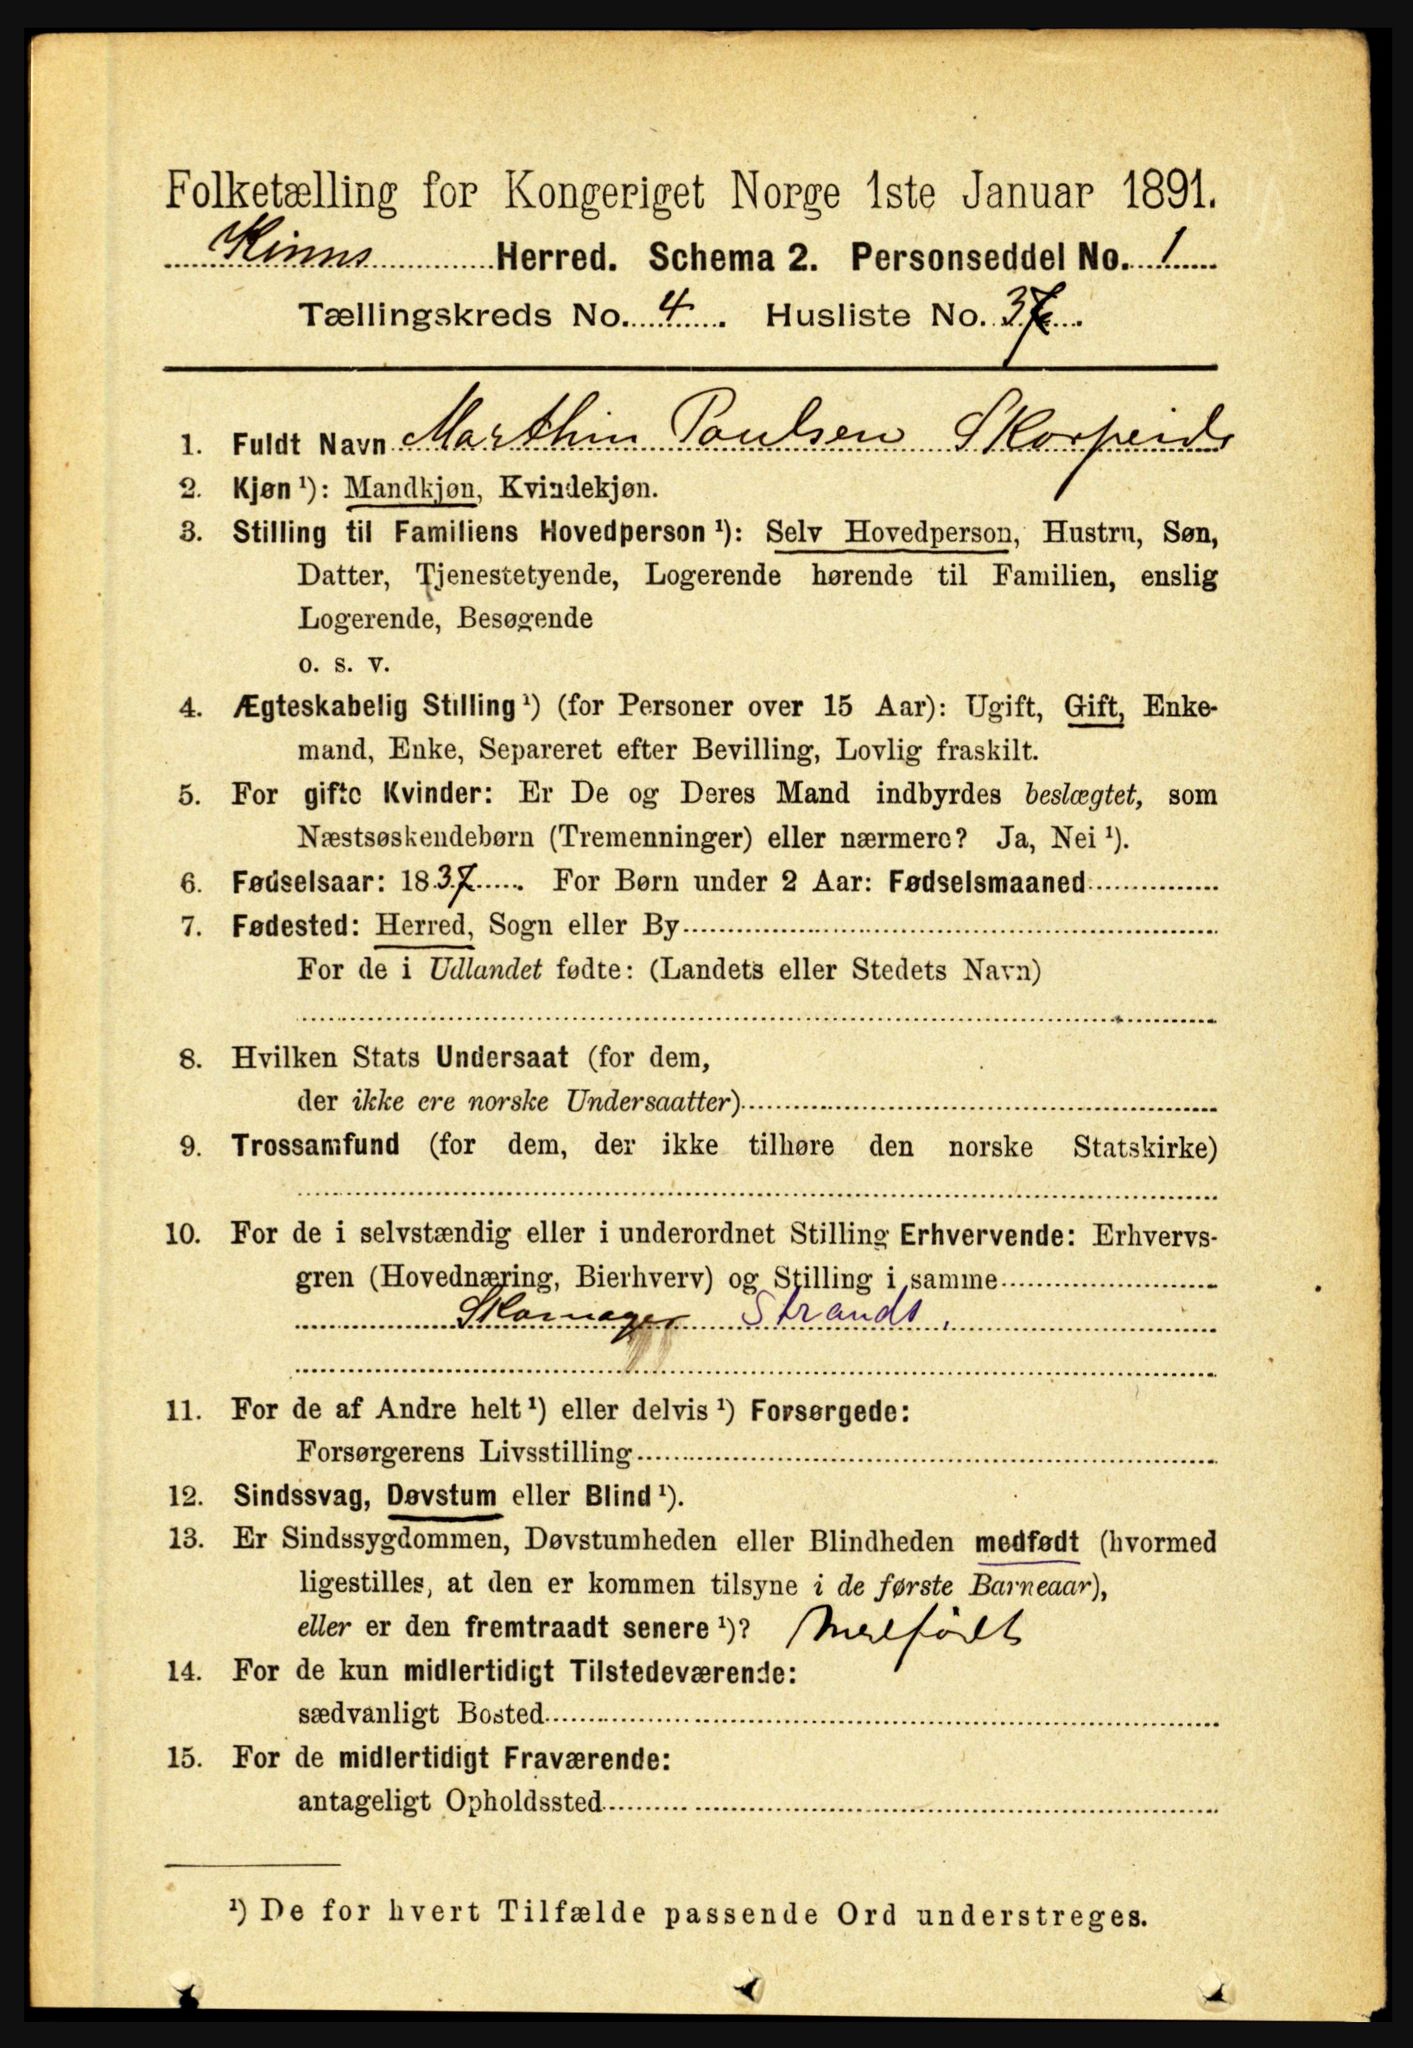 Folketælling for Kongeriget Norge 1ste Januar 1891.
Kinns Herred. Schema 2. Personseddel No. 1
Tællingskreds No. 4. Husliste No. 37.
1. Fuldt Navn Marthin Paulsen Skorpeide
2. Kjøn¹): Mandkjøn, Kvindekjøn.
3. Stilling til Familiens Hovedperson¹): Selv Hovedperson, Hustru, Søn,
Datter, Tjenestetyende, Logerende hørende til Familien, enslig
Logerende, Besøgende
o. s. v.
4. Ægteskabelig Stilling¹) (for Personer over 15 Aar): Ugift, Gift, Enke-
mand, Enke, Separeret efter Bevilling, Lovlig fraskilt.
5. For gifte Kvinder: Er De og Deres Mand indbyrdes beslægtet, som
Næstsøskendebørn (Tremenninger) eller nærmere? Ja, Nei¹).
6. Fødselsaar: 1837. For Børn under 2 Aar: Fødselsmaaned
7. Fødested: Herred, Sogn eller By
For de i Udlandet fødte: (Landets eller Stedets Navn)
8. Hvilken Stats Undersaat (for dem,
der ikke ere norske Undersaatter)
9. Trossamfund (for dem, der ikke tilhøre den norske Statskirke)
10. For de i selvstændig eller i underordnet Stilling Erhvervende: Erhvervs-
gren (Hovednæring, Bierhverv) og Stilling i samme
Skomager Strands.
11. For de af Andre helt¹) eller delvis¹) Forsørgede:
Forsørgerens Livsstilling
12. Sindssvag, Døvstum eller Blind¹).
13. Er Sindssygdommen, Døvstumheden eller Blindheden medfødt (hvormed
ligestilles, at den er kommen tilsyne i de første Barneaar),
eller er den fremtraadt senere¹)? Medfødt
14. For de kun midlertidigt Tilstedeværende:
sædvanligt Bosted
15. For de midlertidigt Fraværende:
antageligt Opholdssted
¹) De for hvert Tilfælde passende Ord understreges.